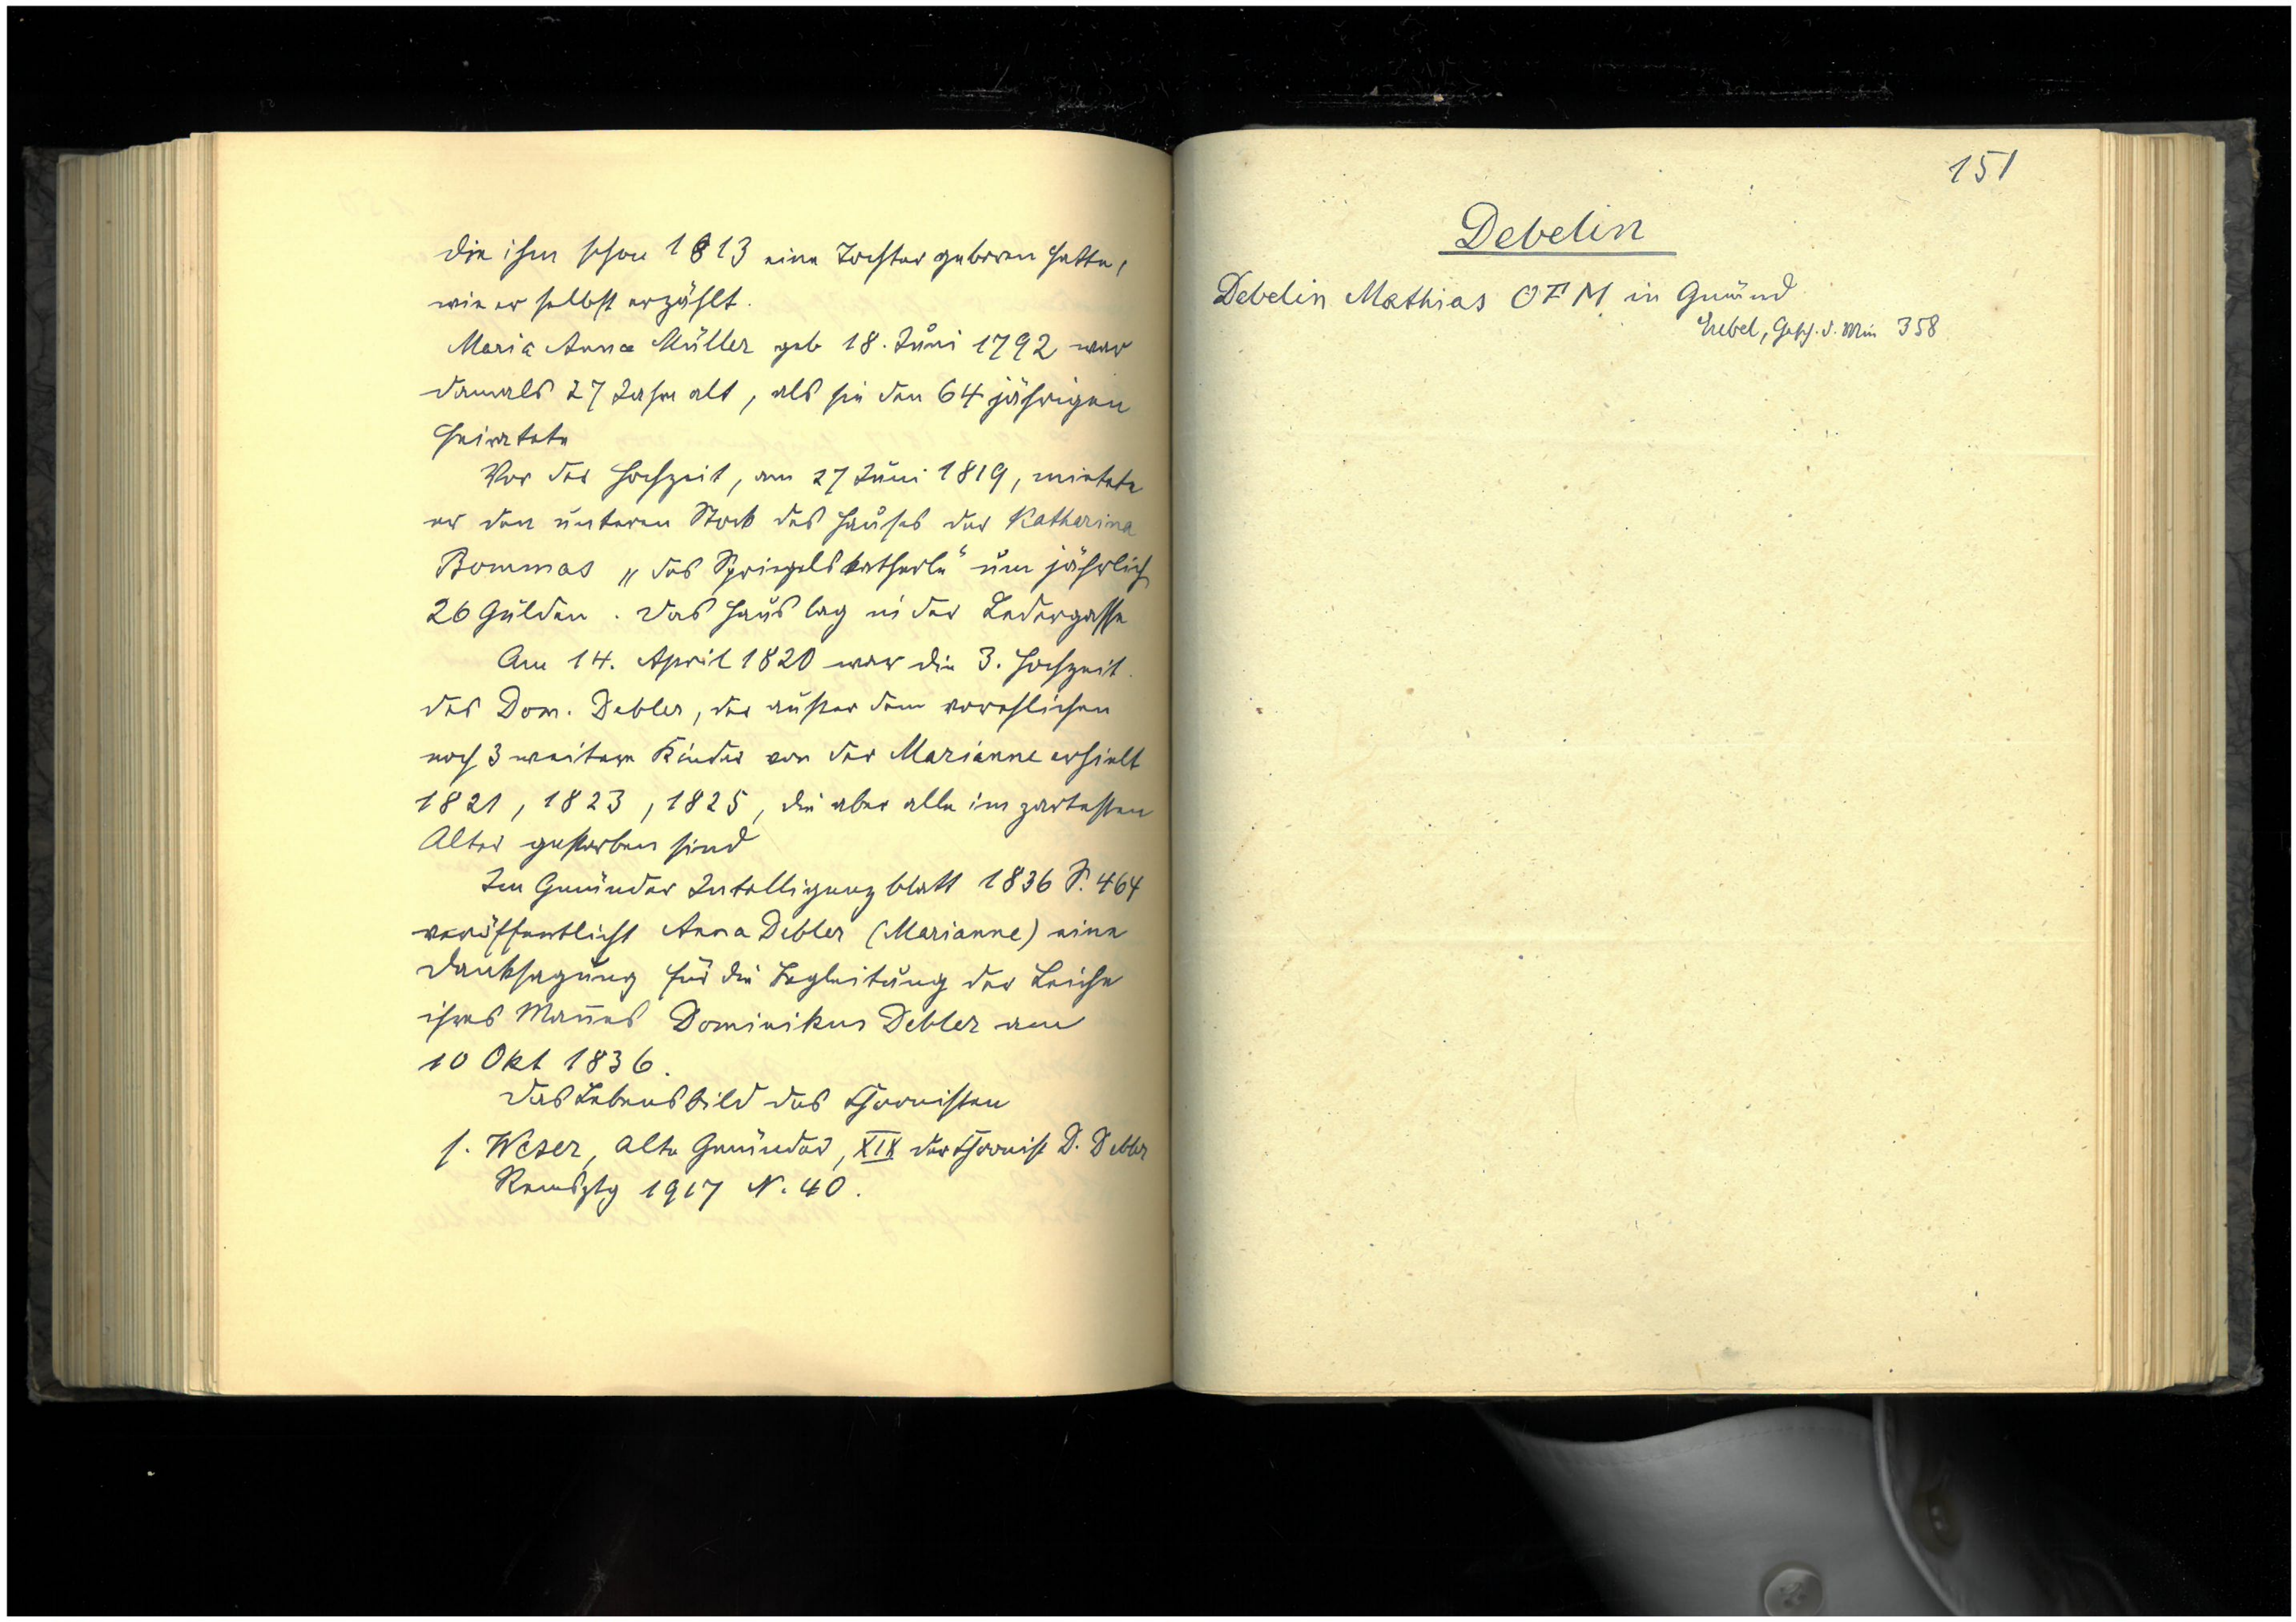 die ihm schon 1813 eine Tochter geboren hatte,
wie er selbst erzählt.
Maria Anna Müller geb 18. Juni 1792 war
damals 27 Jahre alt, als sie den 64 jährigen
heiratete
Vor der Hochzeit, am 27 Juni 1819, mietete
er den unteren Stock des Hauses der Katharina
Bommas „des Spriegelskatherle“ um jährlich
26 Gulden. Das Haus lag in der Ledergasse
Am 14. April 1820 war die 3. Hochzeit
des Dom. Debler, der außer dem vorehlichen
noch 3 weitere Kinder von der Marianne erhielt
1821, 1823, 1825, die aber alle im zartesten
Alter gestorben sind
Im Gmünder Intelligenzblatt 1836 S. 464
veröffentlicht Anna Debler (Marianne) eine
Danksagung für die Begleitung der Leiche
ihres Mannes Dominikus Debler am
10 Okt 1836.
Das Lebensbild des Chronisten
s. Weser, Alte Gmünder, XIX der Chronist D. Debler
Remsztg 1917 N. 40.
151
Debelin
Debelin Mathias OFM in Gmünd
Eubel, Gesch. d. Min 358